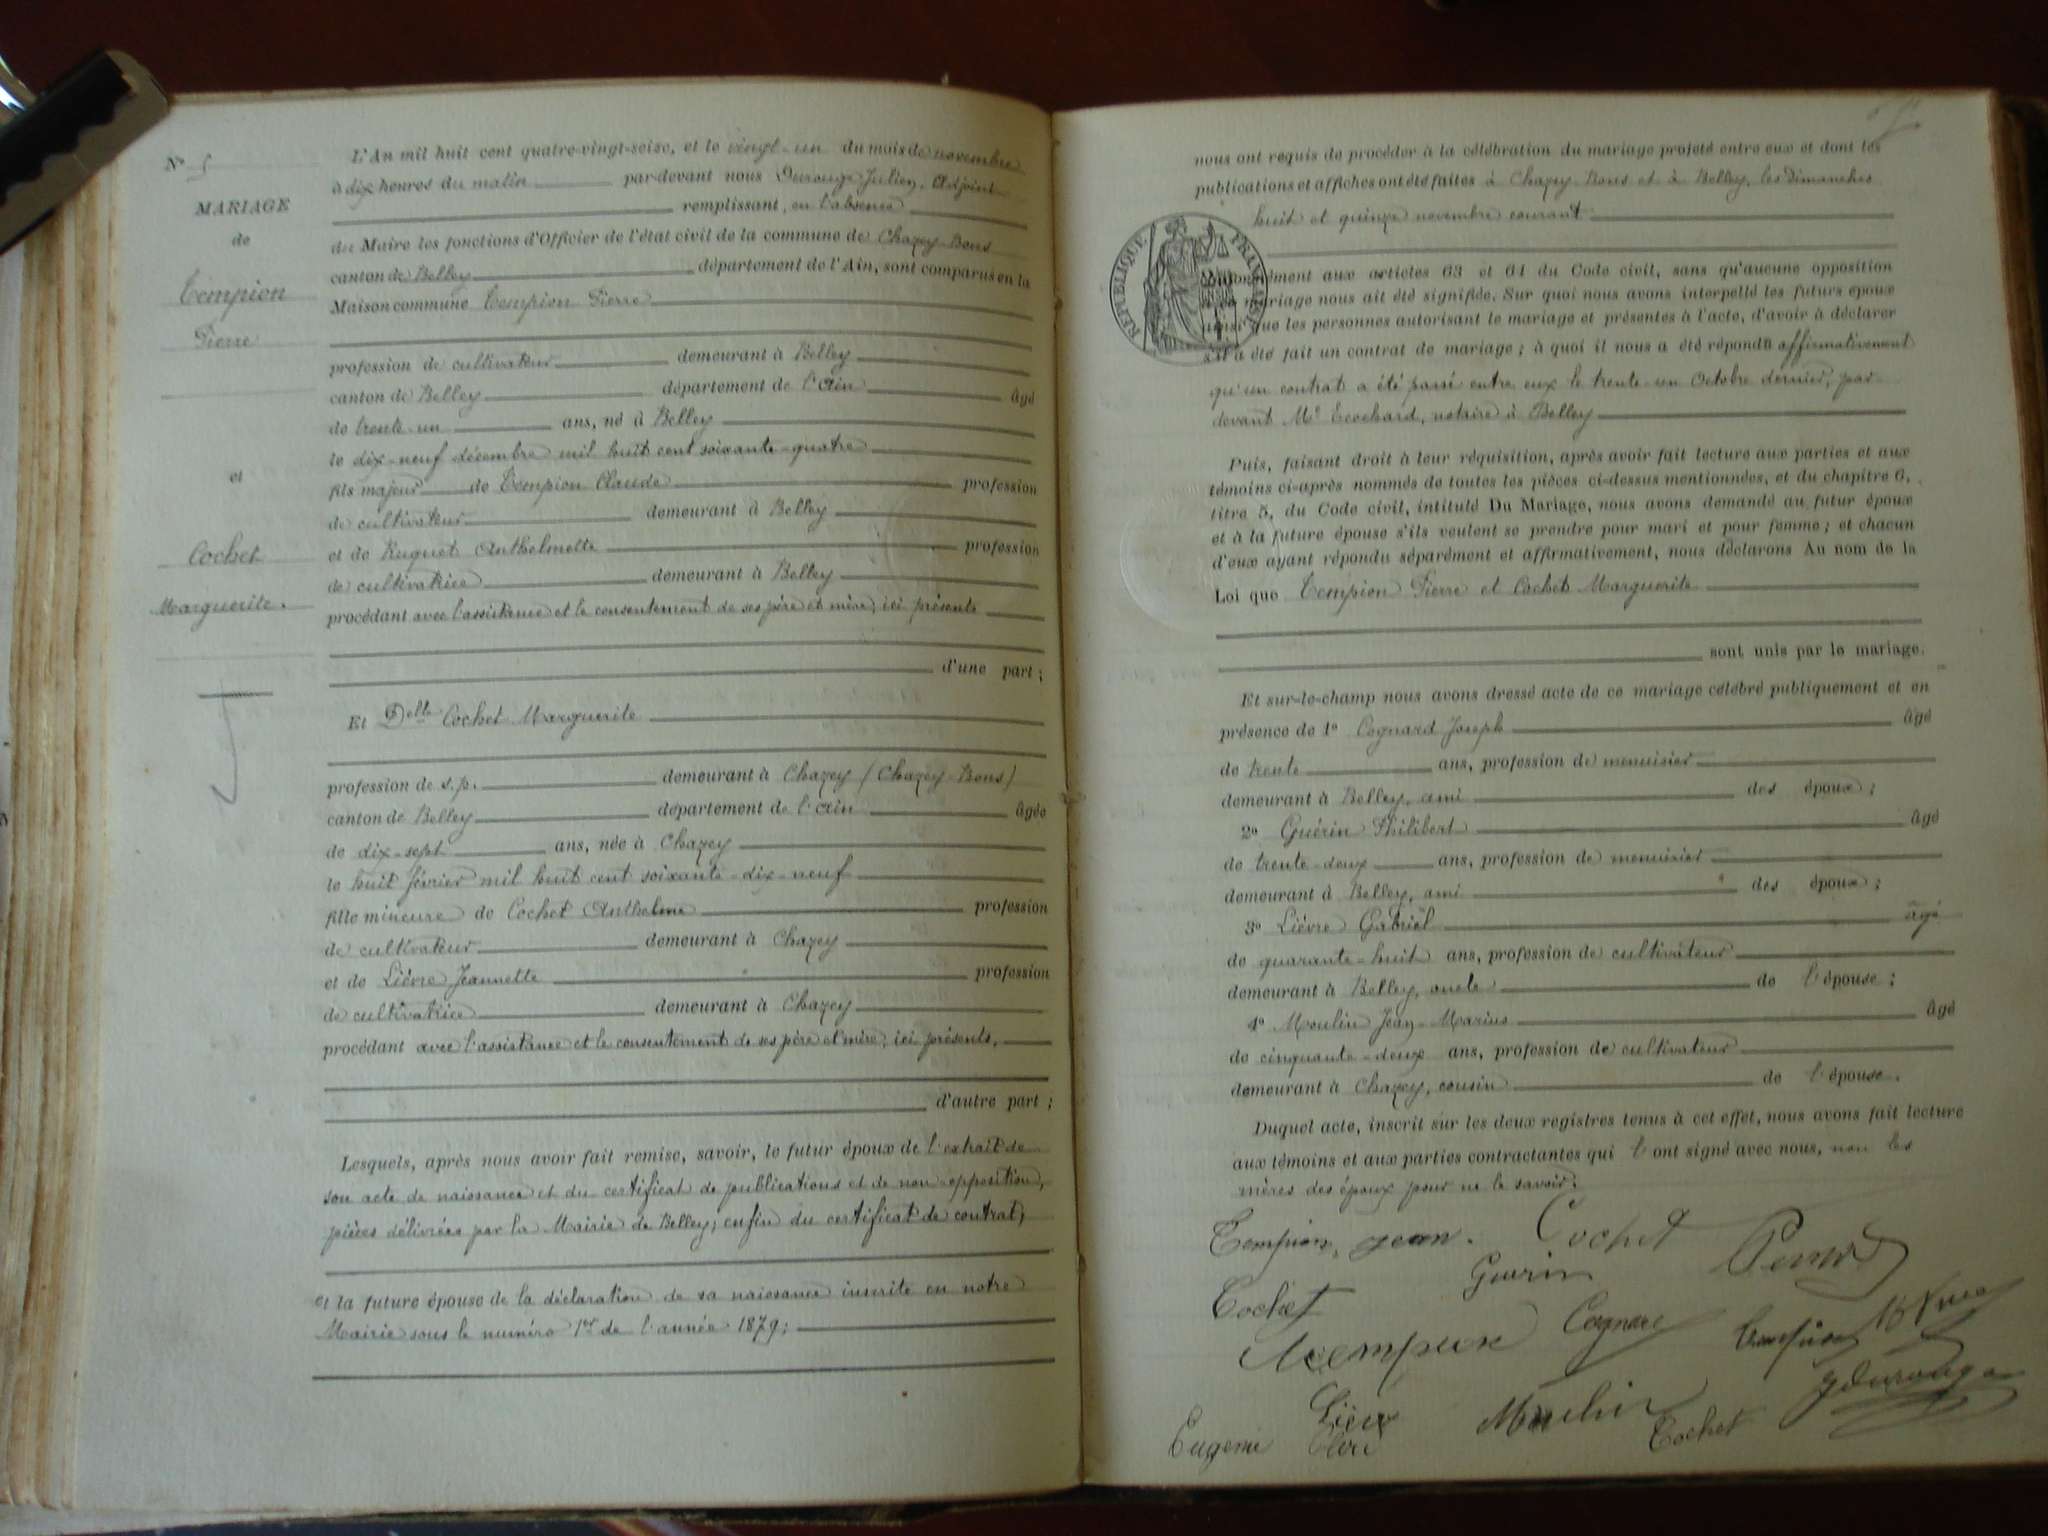 N° 5
MARIAGE
de
Tempion
Pierre
et
Cochet
Marguerite.
L'An mil huit cent quatre-vingt-seize, et le vingt-un du mois de novembre
à dix heures du matin par-devant nous Durouge Julien, Adjoint
remplissant, en l'absence
du Maire les fonctions d'Officier de l'état civil de la commune de Chazey-Bons
canton de Belley département de l'Ain, sont comparus en la
Maison commune Tempion Pierre
profession de cultivateur demeurant à Belley
canton de Belley département de l'Ain âgé
de trente-un ans, né à Belley
le dix-neuf décembre mil huit cent soixante-quatre
fils majeur de Tempion Claude profession
de cultivateur demeurant à Belley
et de Ruguet Anthelmette profession
de cultivatrice demeurant à Belley
procédant avec l'assistance et le consentement de ses père et mère, ici présents
d'une part ;
Et Delle Cochet Marguerite
profession de s.p. demeurant à Chazey (Chazey-Bons)
canton de Belley département de l'Ain âgée
de dix-sept ans, née à Chazey
le huit février mil huit cent soixante-dix-neuf
fille mineure de Cochet Anthelme profession
de cultivateur demeurant à Chazey
et de Lièvre Jeannette profession
de cultivatrice demeurant à Chazey
procédant avec l'assistance et le consentement de ses père et mère, ici présents,
d'autre part ;
Lesquels, après nous avoir fait remise, savoir, le futur époux de l'extrait de
son acte de naissance et du certificat de publications et de non-opposition,
pièces délivrées par la Mairie de Belley; enfin du certificat de contrat;
et la future épouse de la déclaration de sa naissance inscrite en notre
Mairie sous le numéro 1er de l'année 1879;
nous ont requis de procéder à la célébration du mariage projeté entre eux et dont les
publications et affiches ont été faites à Chazey-Bons et à Belley, les Dimanches
huit et quinze novembre courant
RÉPUBLIQUE FRANÇAISE
Conformément aux articles 63 et 64 du Code civil, sans qu'aucune opposition
mariage nous ait été signifiée. Sur quoi nous avons interpellé les futurs époux
ainsi que les personnes autorisant le mariage et présentes à l'acte, d'avoir à déclarer
s'il a été fait un contrat de mariage ; à quoi il nous a été répondu affirmativement
qu'un contrat a été passé entre eux le trente-un Octobre dernier, par-
devant Me Ecochard, notaire à Belley
Puis, faisant droit à leur réquisition, après avoir fait lecture aux parties et aux
témoins ci-après nommés de toutes les pièces ci-dessus mentionnées, et du chapitre 6,
titre 5, du Code civil, intitulé Du Mariage, nous avons demandé au futur époux
et à la future épouse s'ils veulent se prendre pour mari et pour femme ; et chacun
d'eux ayant répondu séparément et affirmativement, nous déclarons Au nom de la
Loi que Tempion Pierre et Cochet Marguerite
sont unis par le mariage.
Et sur-le-champ nous avons dressé acte de ce mariage célébré publiquement et en
présence de 1° Cognard Joseph âgé
de trente ans, profession de menuisier
demeurant à Belley, ami des époux ;
2° Guérin Philibert âgé
de trente-deux ans, profession de menuisier
demeurant à Belley, ami des époux ;
3° Lièvre Gabriel âgé
de quarante-huit ans, profession de cultivateur
demeurant à Belley, oncle de l'épouse ;
4° Moulin Jean-Marius âgé
de cinquante-deux ans, profession de cultivateur
demeurant à Chazey, cousin de l'épouse.
Duquel acte, inscrit sur les deux registres tenus à cet effet, nous avons fait lecture
aux témoins et aux parties contractantes qui l'ont signé avec nous, non les
mères des époux pour ne le savoir.
Tempion, jean. Cochet
Guerin
Cochet
Tempion Cognard Tempion
Lièvre Moulin Cochet JDurouge
Eugenie